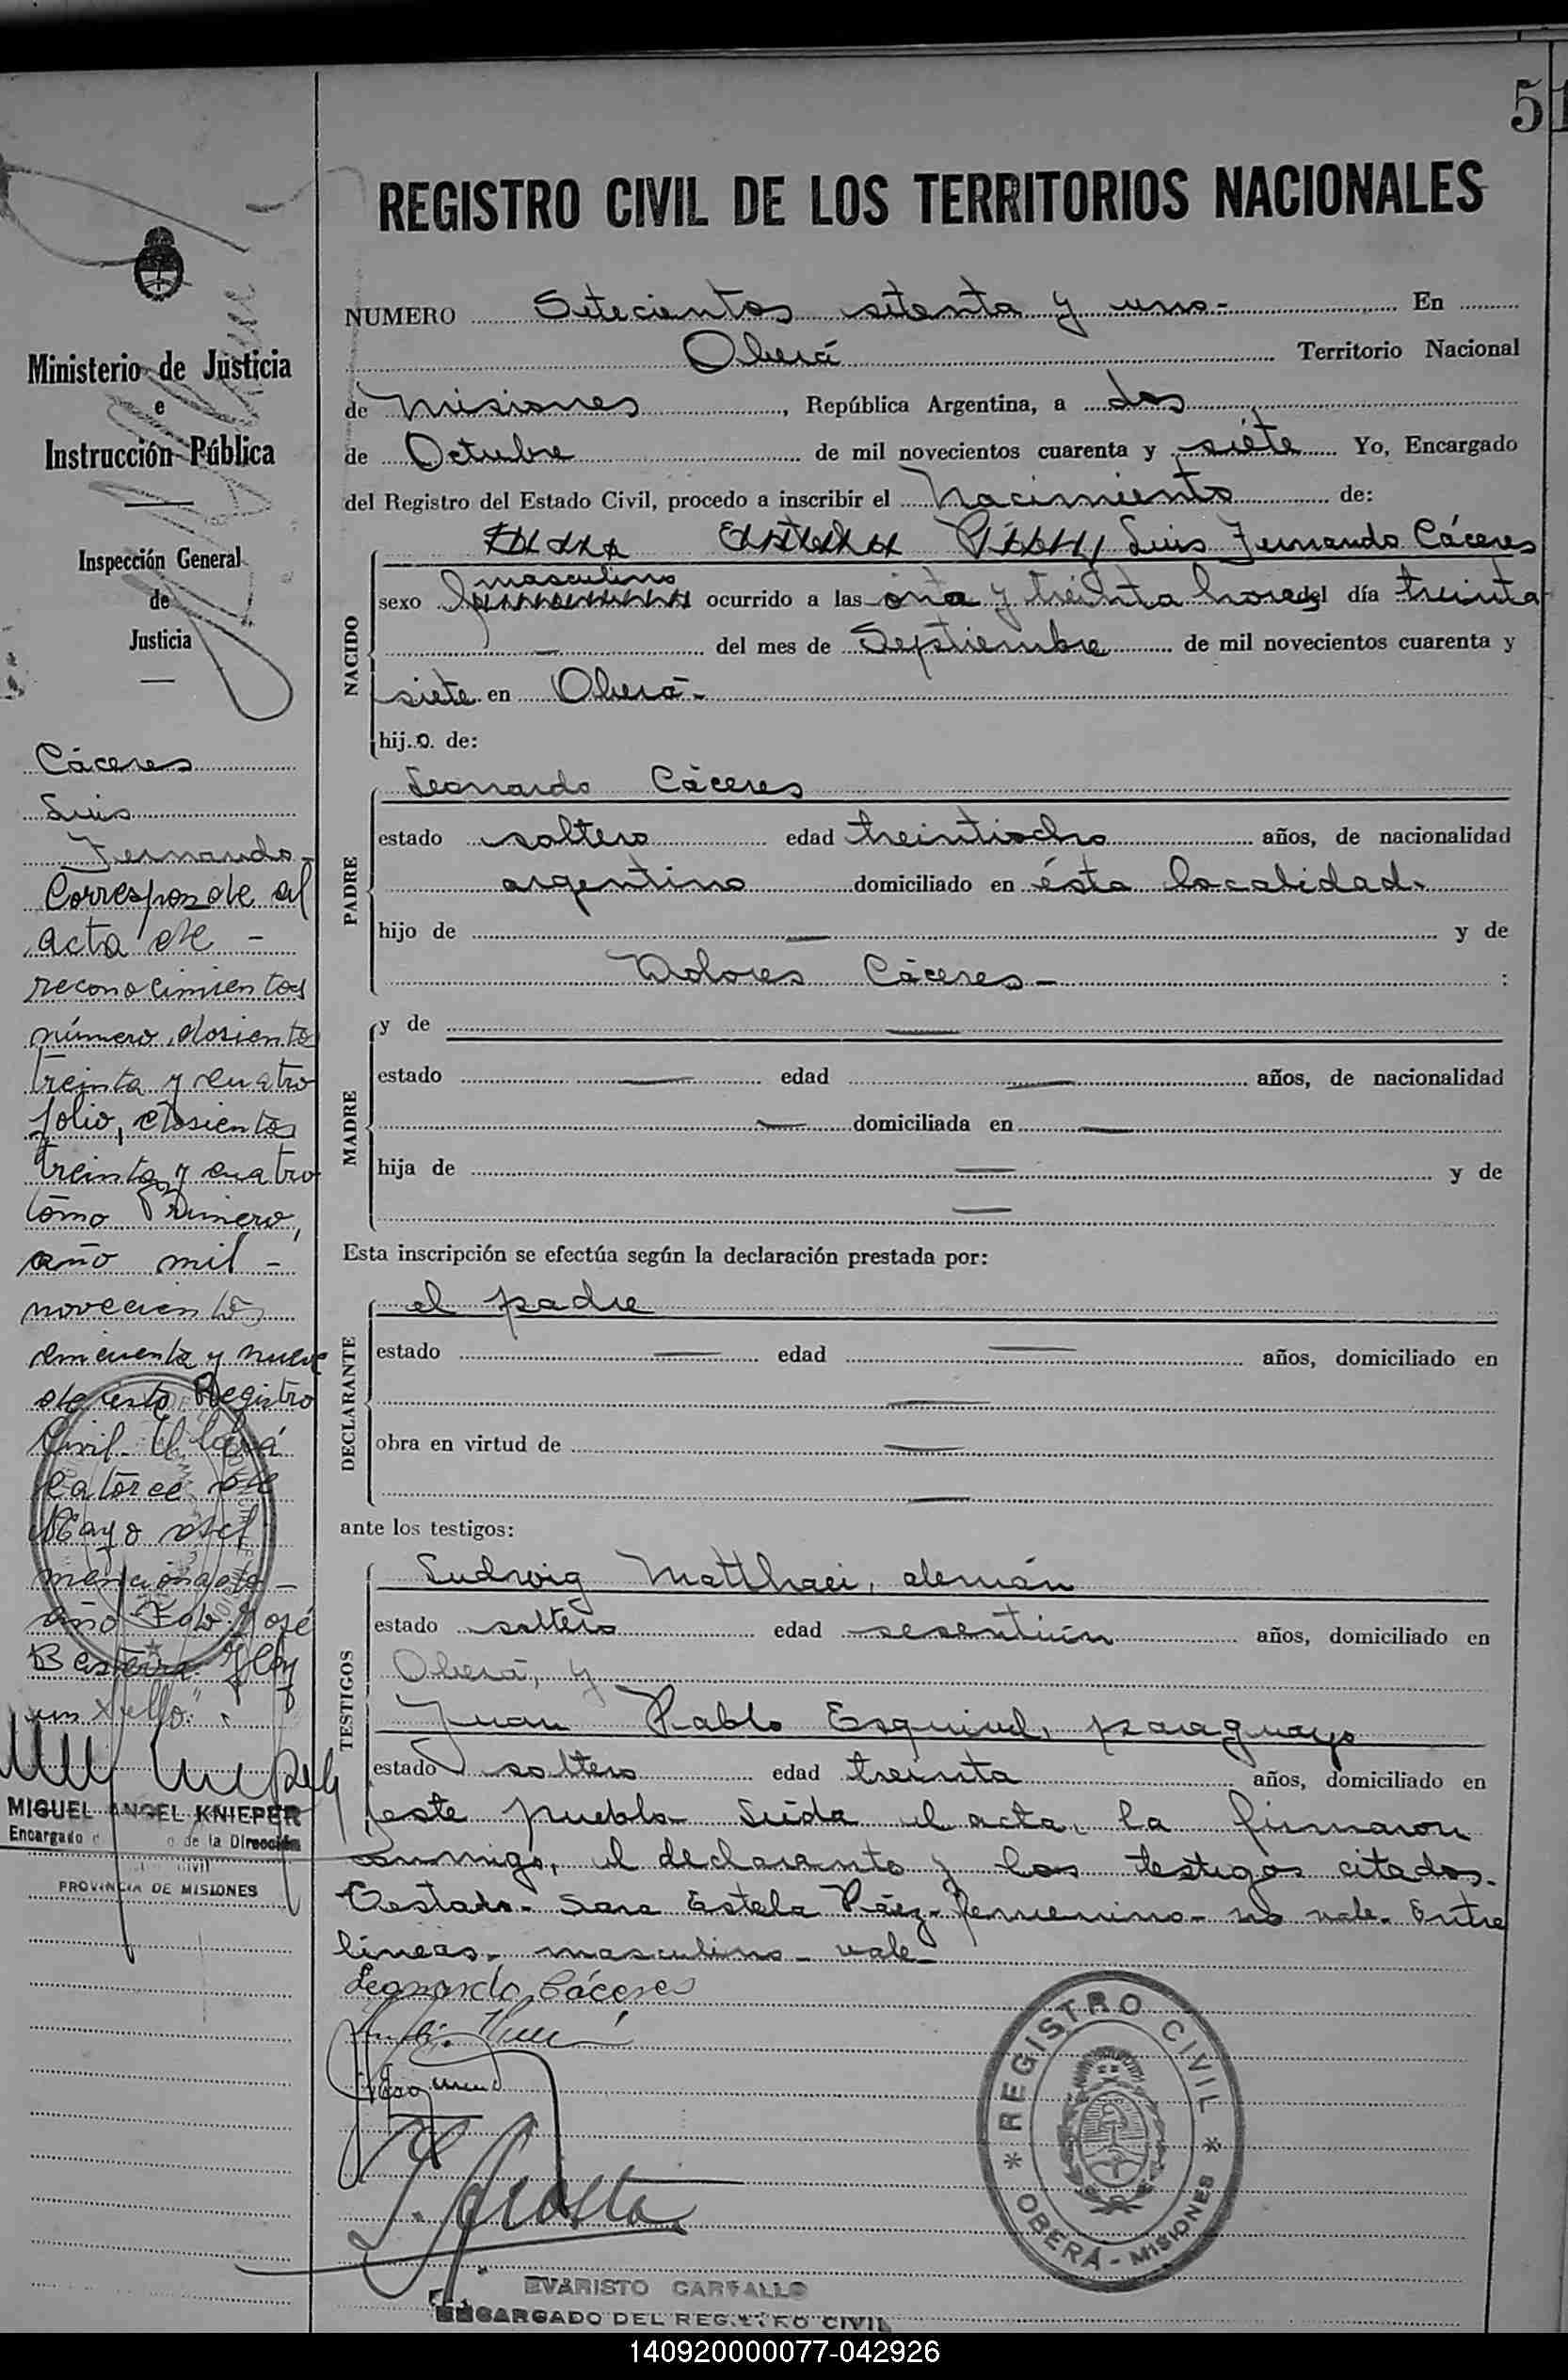 51
REGISTRO CIVIL DE LOS TERRITORIOS NACIONALES
Ministerio de Justicia
e
Instrucción Pública
Inspección General
de
Justicia
Cáceres
Luis
Fernando
Corresponde al
acta de -
reconocimientos
número, dosiento
treinta y cuatro
folio, dosientos
treinta y cuatro
tomo Primero,
año mil -
novecientos
cincuenta y nueve
de este Registro
Civil
catorce de
Mayo del
mencionado -
año José
Hay
un sello".
MIGUEL ANGEL KNIEPER
Encargado o de la Dirección
Civil
PROVINCIA DE MISIONES
NUMERO Setecientos setenta y uno.- En
Oberá Territorio Nacional
de Misiones, República Argentina, a dos
de Octubre de mil novecientos cuarenta y siete Yo, Encargado
del Registro del Estado Civil, procedo a inscribir el nacimiento de:
Luis Fernando Cáceres
NACIDO
masculino
sexo femenino ocurrido a las y treinta horas del día treinta
del mes de Septiembre de mil novecientos cuarenta y
siete en Oberá.-
hijo de:
PADRE
Leonardo Cáceres
estado soltero edad treintiocho años, de nacionalidad
argentino domiciliado en ésta localidad.
hijo de — y de
Dolores Cáceres — :
MADRE
y de —
estado — edad — años, de nacionalidad
— domiciliada en —
hija de — y de
—
Esta inscripción se efectúa según la declaración prestada por:
DECLARANTE
el padre
estado — edad — años, domiciliado en
—
obra en virtud de —
—
ante los testigos:
TESTIGOS
Ludwig Matthaei, alemán
estado soltero edad sesentiún años, domiciliado en
Oberá, y
Juan Pablo Esquivel, paraguayo
estado soltero edad treinta años, domiciliado en
este pueblo Leída el acta, la firmaron
conmigo, el declarante y los testigos citados.
Testado. Sara Estela Páez. femenino. no vale. Entre
líneas. masculino. vale
Leonardo Cáceres
REGISTRO CIVIL
OBERÁ - MISIONES
EVARISTO CARVALLO
ENCARGADO DEL REGISTRO CIVIL
140920000077-042926